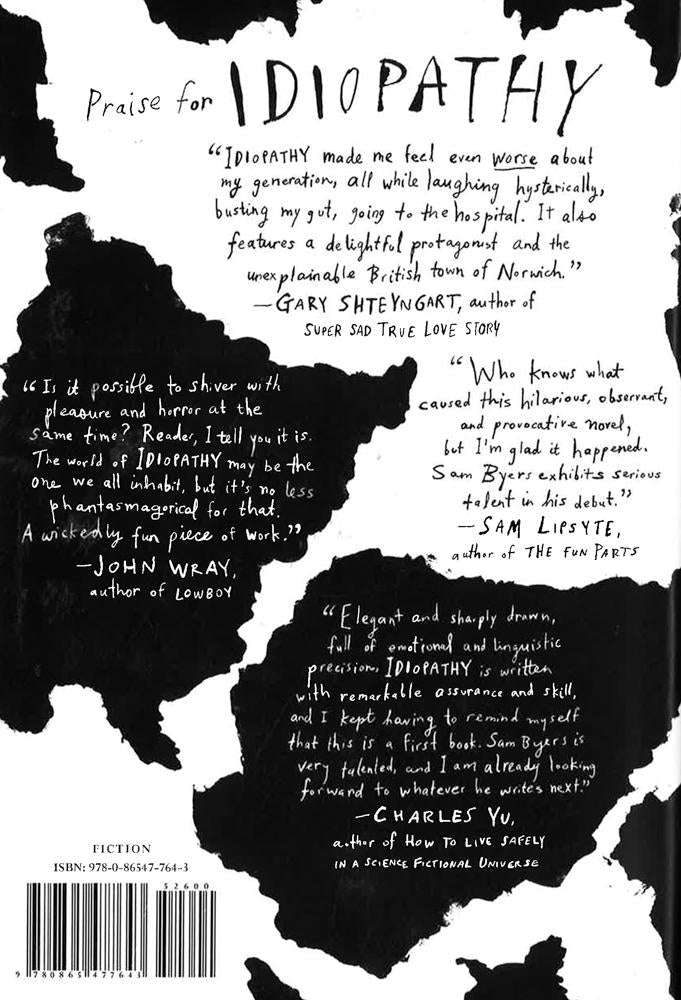 Praise for IDIOPATHY
“IDIOPATHY made me feel even worse about
my generation, all while laughing hysterically,
busting my gut, going to the hospital. It also
features a delightful protagonist and the
unexplainable British town of Norwich.”
—GARY SHTEYNGART, author of
SUPER SAD TRUE LOVE STORY
“Is it possible to shiver with
pleasure and horror at the
same time? Reader, I tell you it is.
The world of IDIOPATHY may be the
one we all inhabit, but it's no less
phantasmagorical for that.
A wickedly fun piece of work.”
—JOHN WRAY,
author of LOWBOY
“Who knows what
caused this hilarious, observant,
and provocative novel,
but I'm glad it happened.
Sam Byers exhibits serious
talent in his debut.”
—SAM LIPSYTE,
author of THE FUN PARTS
“Elegant and sharply drawn,
full of emotional and linguistic
precision, IDIOPATHY is written
with remarkable assurance and skill,
and I kept having to remind myself
that this is a first book. Sam Byers is
very talented, and I am already looking
forward to whatever he writes next.”
—CHARLES YU,
author of HOW TO LIVE SAFELY
IN A SCIENCE FICTIONAL UNIVERSE
FICTION
ISBN: 978-0-86547-764-3
52600
9 780865 477643